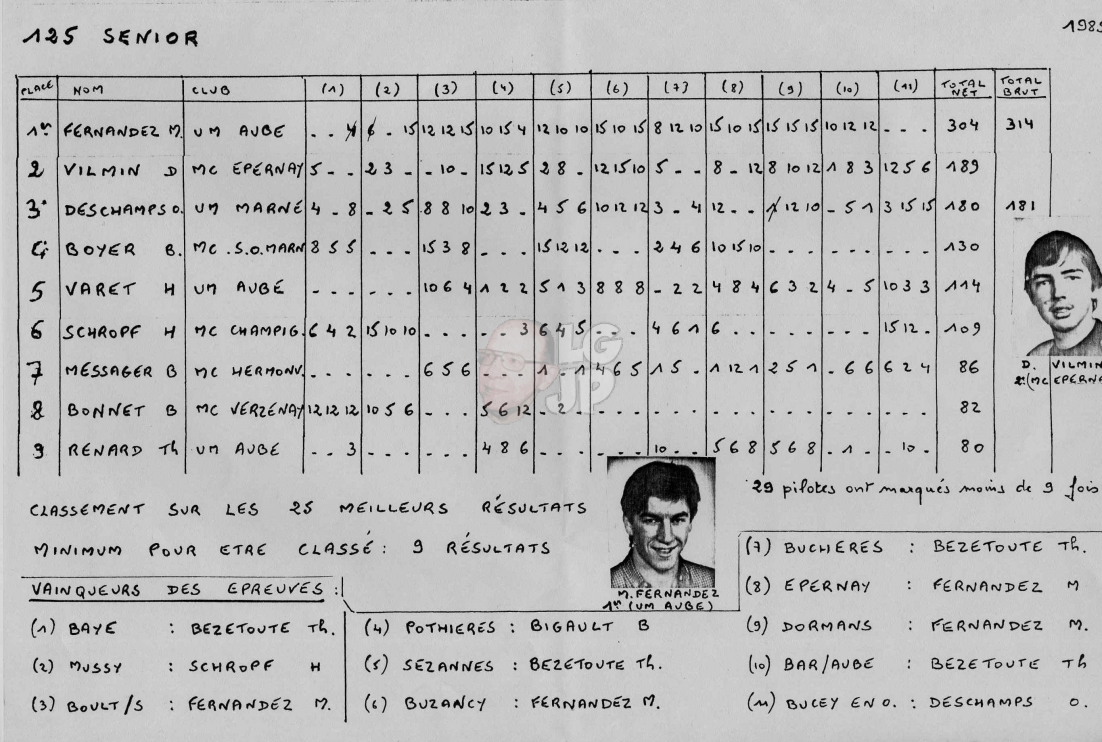 125 SENIOR
PLACE NOM CLUB (1) (2) (3) (4) (5) (6) (7) (8) (9) (10) (11) TOTAL NET TOTAL BRUT
1er FERNANDEZ M. UM AUBE . . 4 6 . 15 12 12 15 10 15 4 12 10 10 15 10 15 8 12 10 15 10 15 15 15 15 10 12 12 - . - 304 314
2 VILMIN D MC EPERNAY 5 - - 2 3 - - 10 . 15 12 5 2 8 - 12 15 10 5 - - 8 - 12 8 10 12 1 8 3 12 5 6 189
3. DESCHAMPS O. UM MARNE 4 - 8 - 2 5 8 8 10 2 3 - 4 5 6 10 12 12 3 - 4 12 - - 1 12 10 - 5 1 3 15 15 180 181
4 BOYER B. MC .S.O.MARN 8 5 5 - - - 15 3 8 - - - 15 12 12 - - - 2 4 6 10 15 10 - - - - - - - - - 130
5 VARET H UM AUBE - - - - - - 10 6 4 1 2 2 5 1 3 8 8 8 - 2 2 4 8 4 6 3 2 4 - 5 10 3 3 114
6 SCHROPF H MC CHAMPIG. 6 4 2 15 10 10 - - - - - 3 6 4 5 - - - 4 6 1 6 - - - - - - - - 15 12 - 109
7 MESSAGER B MC HERMONV. - - - - - - 6 5 6 - - - 1 - 1 4 6 5 1 5 - 1 12 1 2 5 1 - 6 6 6 2 4 86
8 BONNET B MC VERZENAY 12 12 12 10 5 6 - - - 5 6 12 - 2 - - - - - - - - - - - - - - - - - - - 82
9 RENARD Th UM AUBE - - 3 - - - - - - 4 8 6 - - - - - - 10 - - 5 6 8 5 6 8 - 1 - - 10 - 80
D. VILMIN
2e (MC EPERNA
29 pilotes ont marqués moins de 9 fois
CLASSEMENT SUR LES 25 MEILLEURS RÉSULTATS
MINIMUM POUR ETRE CLASSÉ : 9 RÉSULTATS
M. FERNANDEZ
1er (UM AUBE)
LG
JP
VAINQUEURS DES EPREUVES :
(1) BAYE : BEZETOUTE Th.
(2) MUSSY : SCHROPF H
(3) BOULT/S : FERNANDEZ M.
(4) POTHIERES : BIGAULT B
(5) SEZANNES : BEZETOUTE Th.
(6) BUZANCY : FERNANDEZ M.
(7) BUCHERES : BEZETOUTE Th.
(8) EPERNAY : FERNANDEZ M
(9) DORMANS : FERNANDEZ M.
(10) BAR/AUBE : BEZETOUTE Th
(11) BUCEY EN O. : DESCHAMPS O.